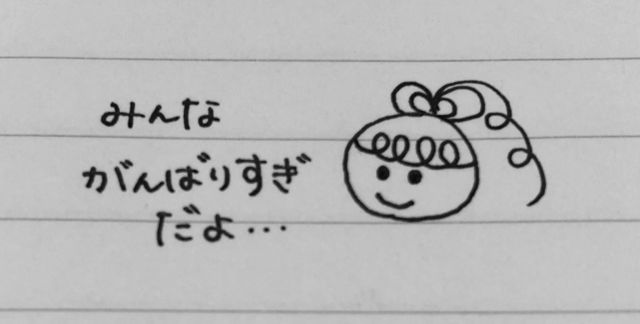 みんな
がんばりすぎ
だよ…